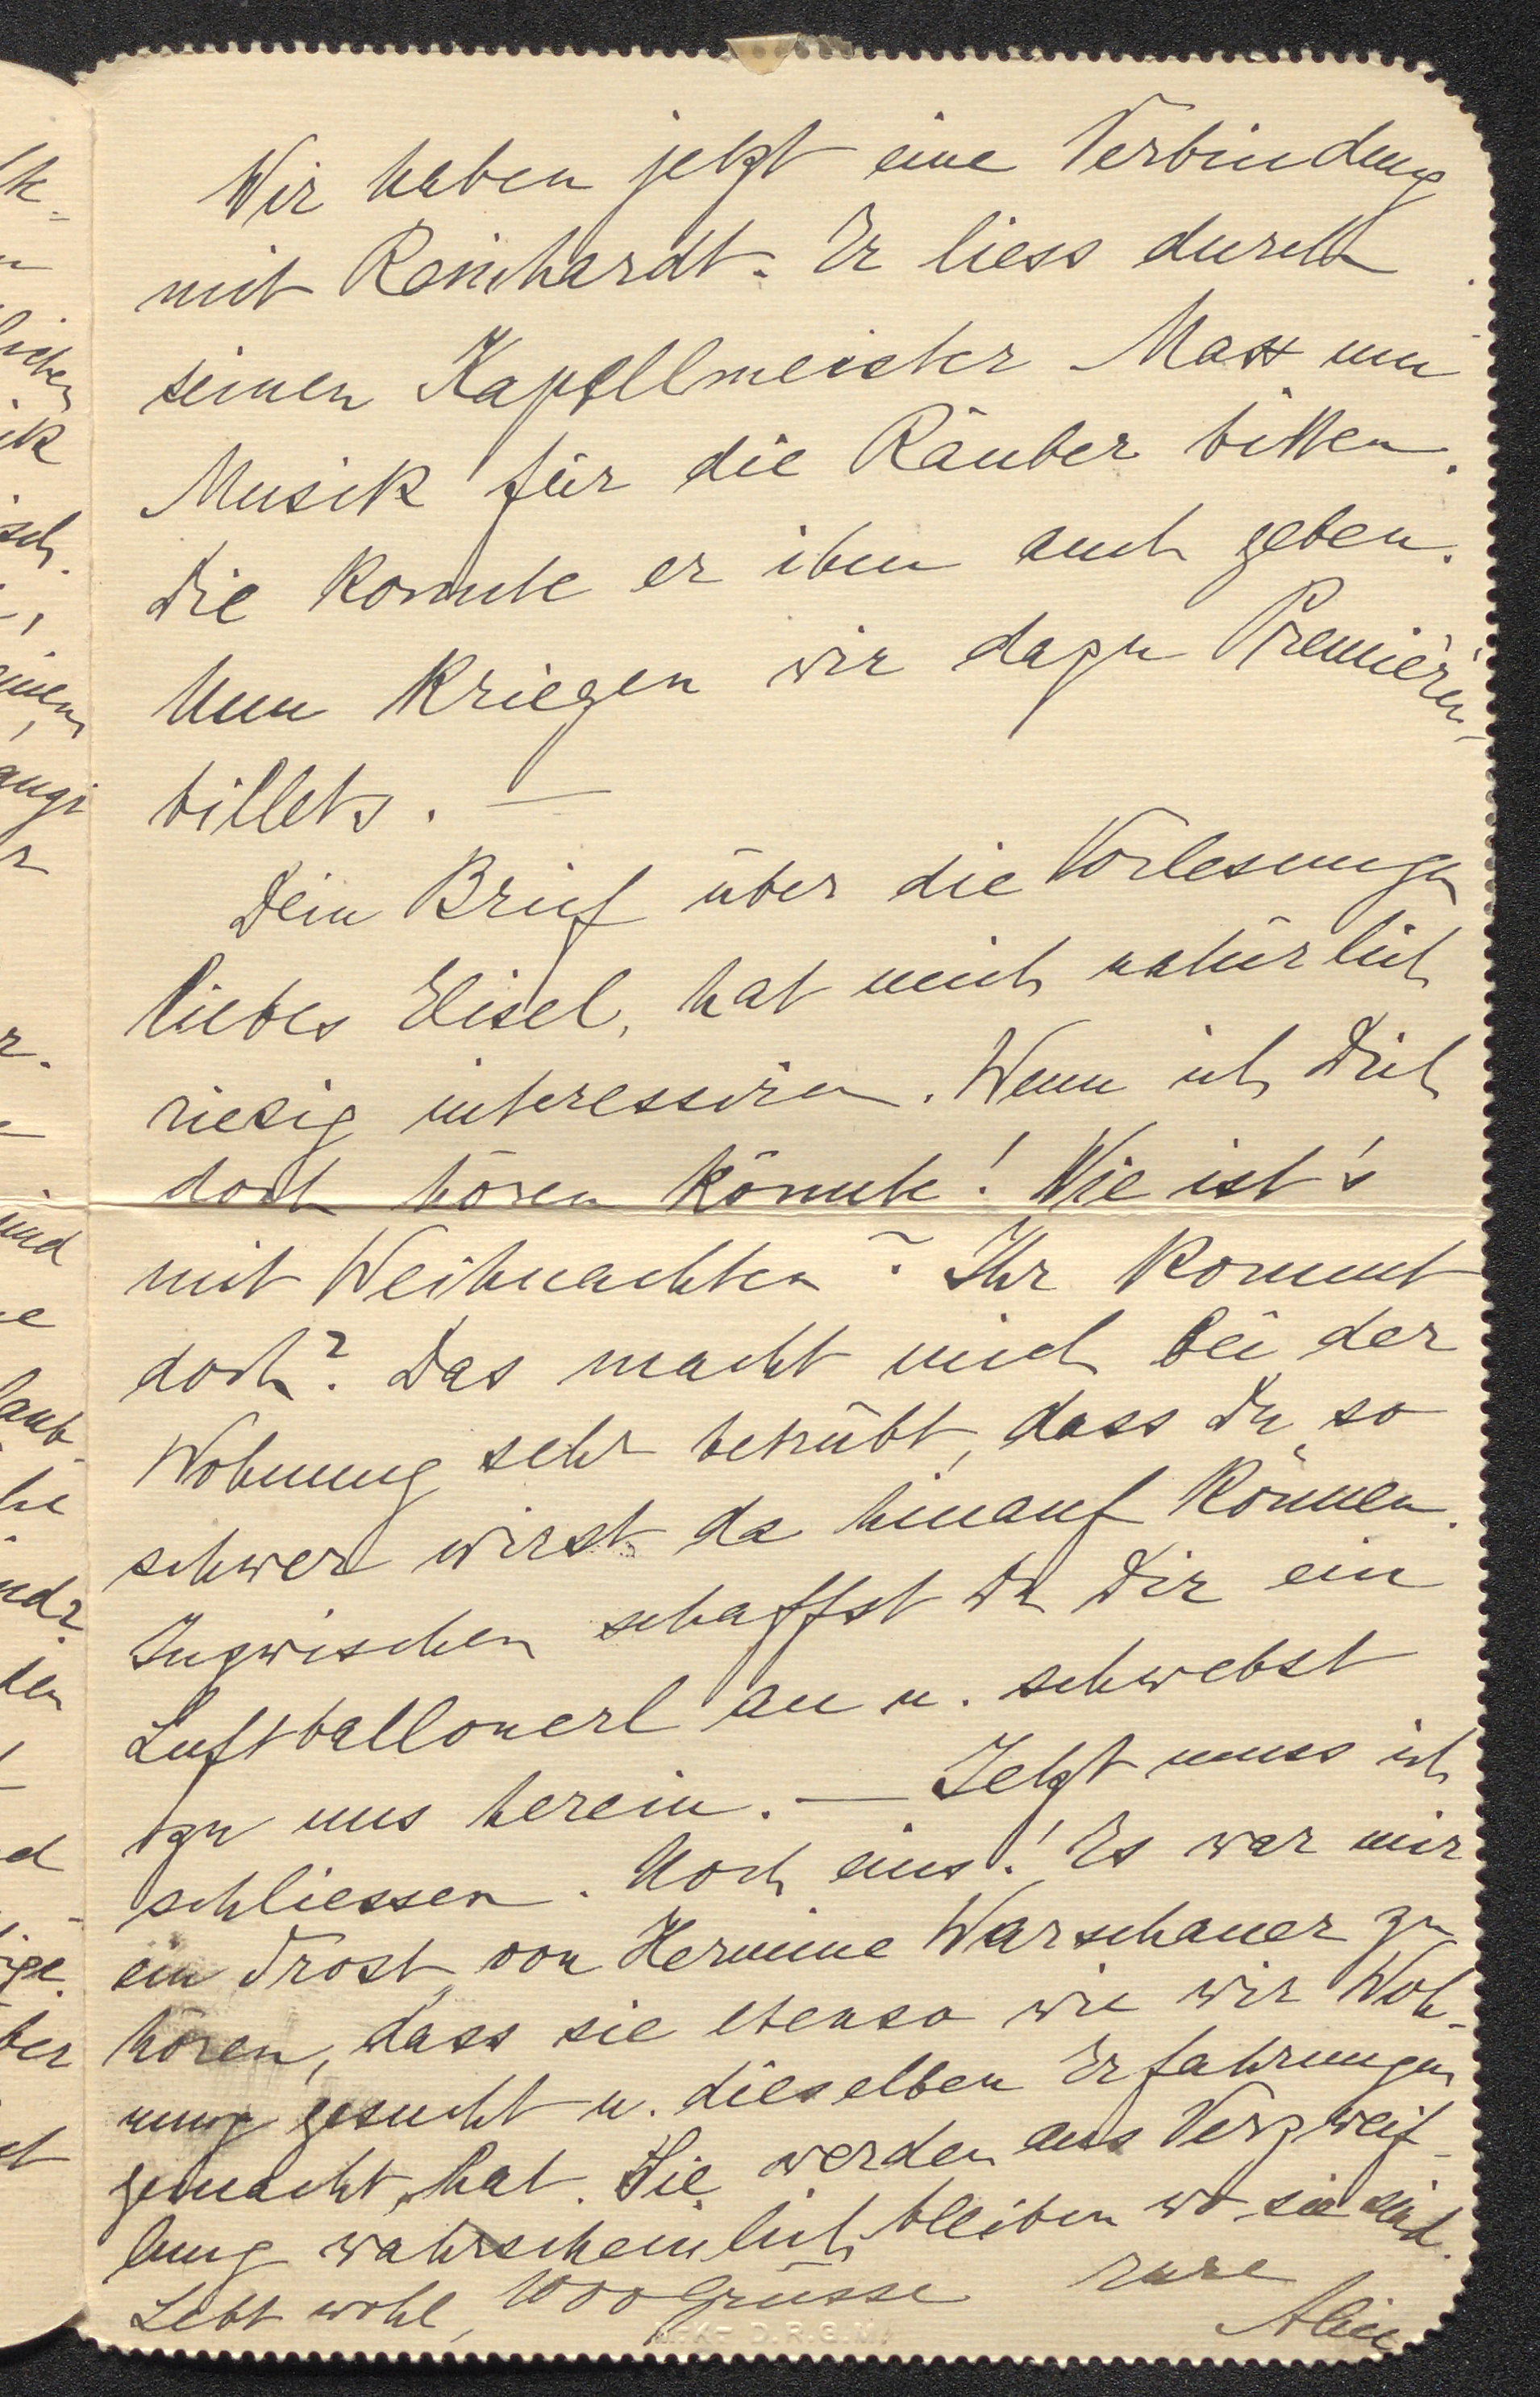 Wir haben jetzt eine Verbindung
mit Reinhardt. Er liess durch
seinen Kapellmeister Max um
Musik für die Räuber bitten.
Die konnte er ihm auch geben.
Nun kriegen wir dazu Premièren-
billets. —
Dein Brief über die Vorlesungen
liebes Lisel, hat mich natürlich
riesig interessiren. Wenn ich Dich
doch hören könnte! Wie ist's
mit Weihnachten? Ihr kommt
doch? Das macht mich bei der
Wohnung sehr betrübt, dass Du so
schwer wirst da hinauf können.
Inzwischen schaffst Du Dir ein
Luftballonerl an u. schwebst
zu uns herein. — Jetzt muss ich
schliessen. Noch eins! Es war mir
ein Trost von Hermine Warschauer zu
hören, dass sie ebenso wie wir Woh-
nung gesucht u. dieselben Erfahrungen
gemacht hat. Sie werden aus Verzweif-
lung wahrscheinlich bleiben wo sie sind.
Lebt wohl, 1000 Grüsse Eure
D.R.G.M.